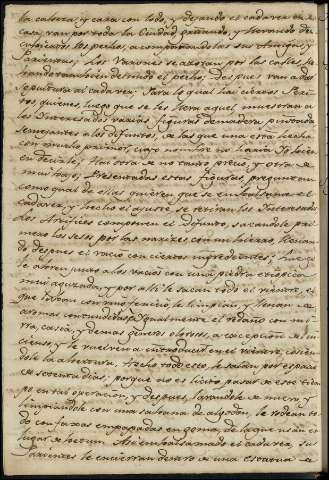 la cabeza, y cara con lodo, y dejando el cadaver en
casa, van por toda la Ciudad gritando, y hiriendose
los pechos, acompañandolas sus Amigas, y
Parientas; Los Varones se azotan por las calles
tambien el pecho. Despues van a dar
sepultura al cadaver; Para lo qual hay ciertos
quienes, luego que se les lleva aquel, muestran a
los Interesados varias figuras de madera pintadas
semejantes a los difuntos, de las que una está hecha
con mucho primor, cuyo nombre no
decirle; Hai otra de no tanto precio, y otra de
mui bajo; Presentadas estas figuras, preguntan
como qual de ellas quieren que se embalsame el
cadaver, y hecho el ajuste se retiran los Interesados
Los Artifices componen el difunto, sacandole
los sesos por las narizes con un hierro,
do despues el vacio con ciertos ingredientes; luego
le abren junto a los vacios con una piedra etiopica
mui aguzada, y por alli le sacan todo el vientre, el
que laban con vino fenicio, le limpian, y llenan de
aromas contundidos; igualmente el redaño con mi-
rra, casia, y demas generos olorosos, a excepcion de in-
cienso, y le vuelven a introducir en el vientre, cosien-
dole la abertura. Hecho todo esto, le salan por espacio
de setenta dias; porque no es licito pasar de este tiem-
po en tal operacion, y despues, labandole de nuevo, y
limpiandole con una sabana de algodon, le rodean to-
do con faxas empapadas en goma, de la que usan en
lugar de Asi embalsamado el cadaver, sus
Parientes le encierran dentro de una estatua de